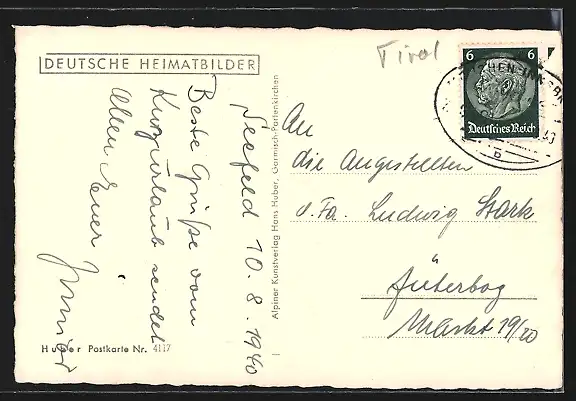 DEUTSCHE HEIMATBILDER
Seefeld 10.8.1940
Beste Grüße vom
Kurzurlaub sendet
Allen Euer
Junior
Huber Postkarte Nr. 4117
Alpiner Kunstverlag Hans Huber, Garmisch-Partenkirchen
Tirol
6 6
Deutsches Reich
MÜNCHEN-INNSBR
b
An
die Angestellten
d. Fa. Ludwig Stark
Jüterbog
Markt 19/20